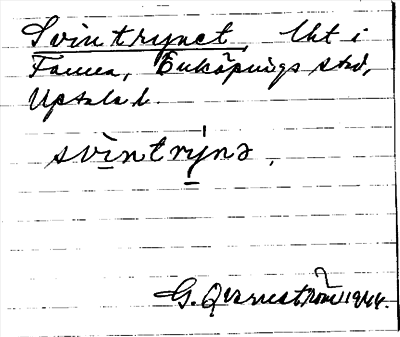 Svintrynet, lht i
Fanna, Enköpings stad,
Upsala l.
svintrynə.
G. Qvarnström 1944.